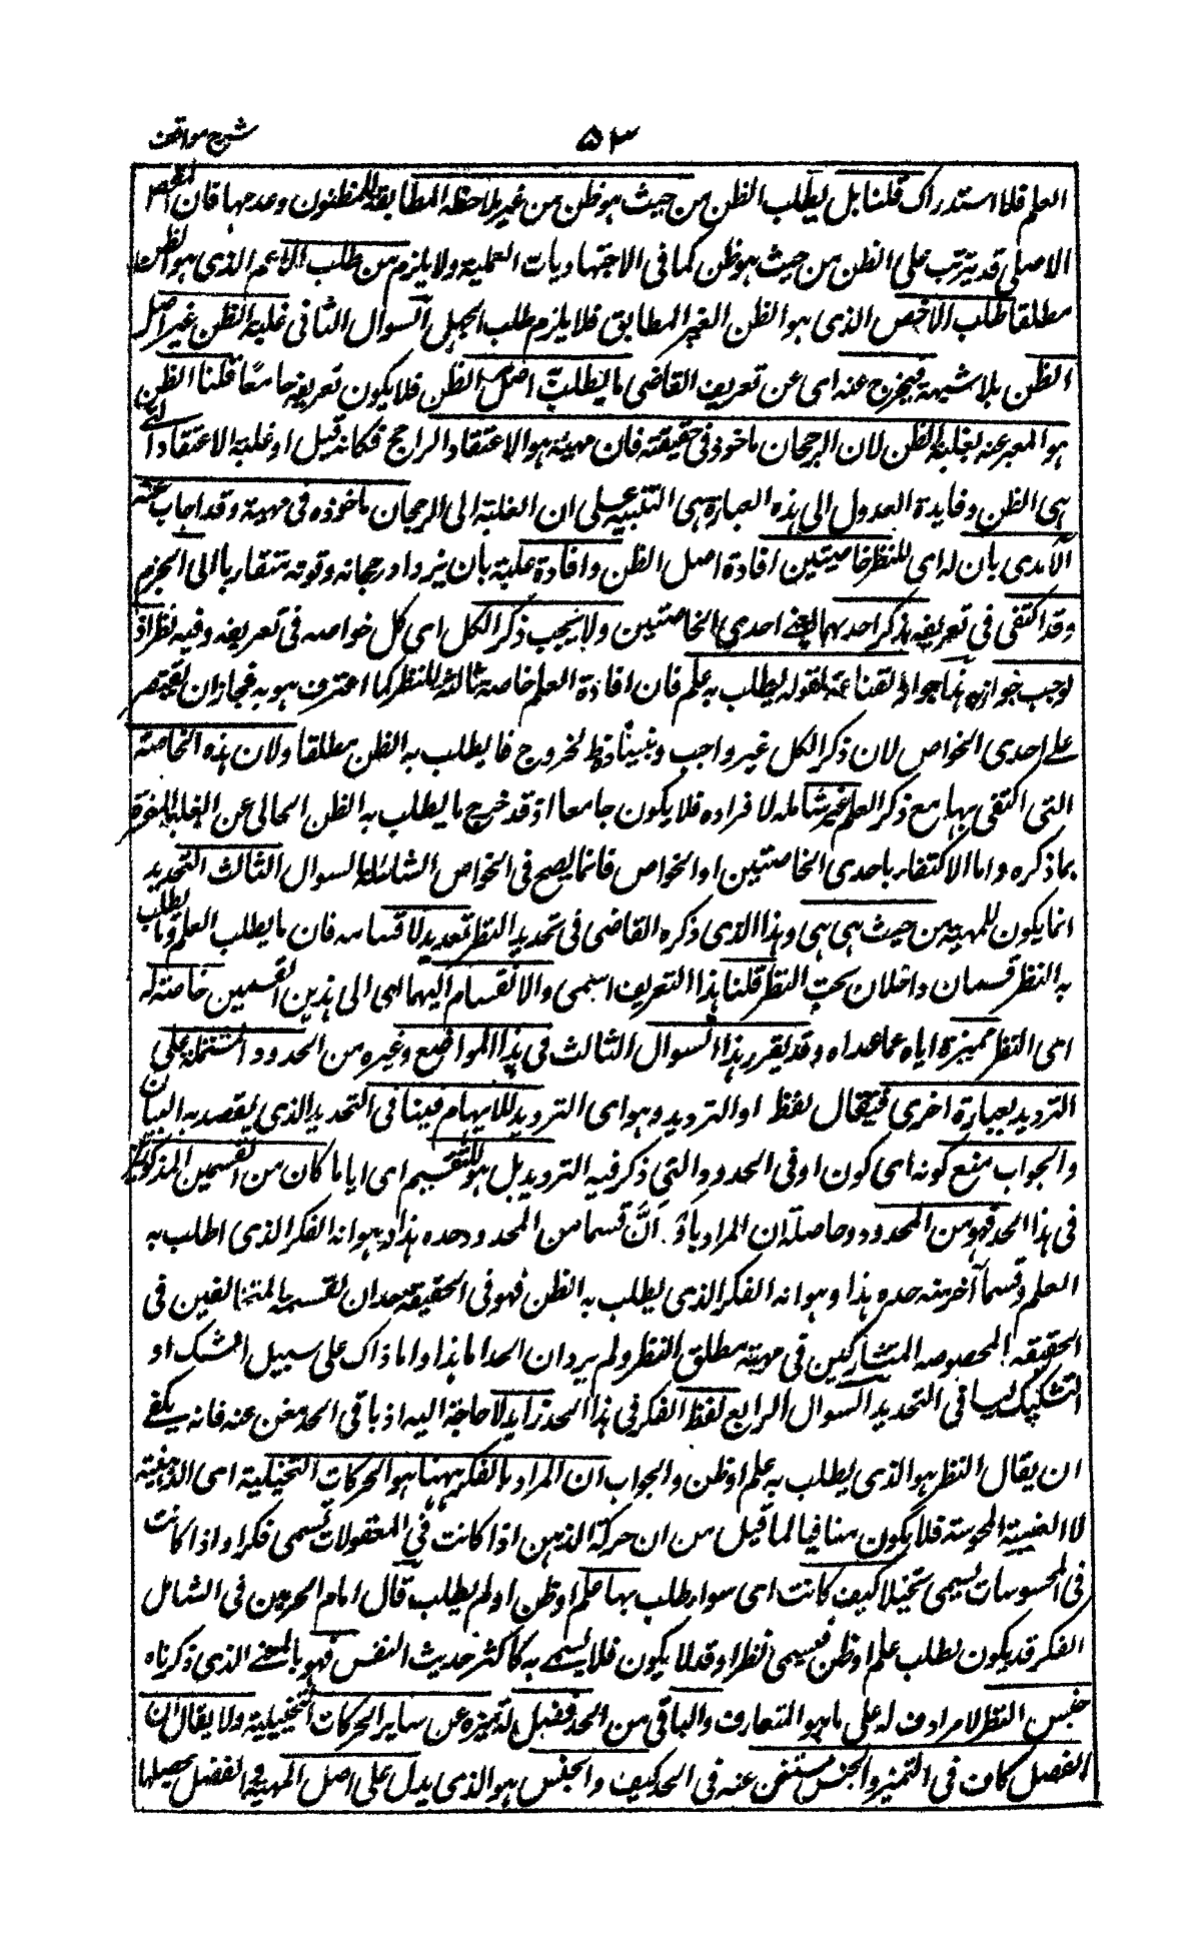 شرح مواقف
٥٣
العلم فلا استدراك قلنا بل يطلب الظن من حيث هو ظن من غير ملاحظة المطابقة للمظنون وعدمها فان المقصد
الاصلي قد يترتب على الظن من حيث هو ظن كما في الاجتهاديات العملية ولا يلزم من طلب الاعم الذي هو الظن
مطلقا طلب الاخص الذي هو الظن الغير المطابق فلا يلزم طلب الجهل السوال الثاني غلبة الظن غير اصل
الظن بلا شبهة فيخرج عنه اى عن تعريف القاضي ما يطلب به اصل الظن فلا يكون تعريفه جامعا قلنا الظن
هو المعبر عنه بغلبة الظن لان الرجحان ماخوذ في حقيقته فان مهيته هو الاعتقاد الراجح فكانه قيل او غلبة الاعتقاد التي
هي الظن وفايدة العدول الى هذه العبارة هي التنبيه على ان الغلبة اى الرجحان ماخوذه في مهيته وقد اجاب عنه
الآمدى بان له اى للنظر خاصيتين افادة اصل الظن وافادة غلبته بان يزداد رجحانه وقوته متقاربا الى الجزم
وقد اكتفى في تعريفه بذكر احدهما يعني احدى الخاصتين ولا يجب ذكر الكل اى كل خواصه في تعريفه وفيه نظر اذ
لوجب جوازه هذا جواز القناعة بقوله يطلب به علم فان افادة العلم خاصة ثالثة للنظر كما اعترف هو به فجاز ان يقتصر
على احدى الخواص لان ذكر الكل غير واجب وخروج ما يطلب به الظن مطلقا ولان هذه الخاصة
التي اكتفى بها مع ذكر العلم غير شاملة لافراده فلا يكون جامعا اذ قد خرج ما يطلب به الظن الخالي عن الغلبة المفسرة
بما ذكره واما الاكتفاء باحدى الخاصتين او الخواص فانما يصح في الخواص الشاملة السوال الثالث التحديد
انما يكون للمهية من حيث هي هي وهذا الذى ذكره القاضي في تحديد النظر تعديد لاقسامه فان ما يطلب العلم وما يطلب
به الظن قسمان داخلان تحت النظر قلنا هذا التعريف اسمى والانقسام اليهما اى الى هذين القسمين خاصة له
اى للنظر مميزة اياه عما عداه وقد يقرر هذا السوال الثالث في هذا المواضع وغيره من الحدود المشتملة على
الترديد بعبارة اخرى فيقال لفظ او الترديد وهو اى الترديد للابهام فينافى التحديد الذى يقصد به البيان
والجواب منع كونه اى كون او في الحدود التي ذكر فيه الترديد بل هو للتقسيم اى ايا ما كان من القسمين المذكورين
في هذا الحد فهو من المحدود وحاصله ان المراد باو ان قسما من المحدود حده هذا وهو انه الفكر الذى اطلب به
العلم وقسما آخر منه حده هذا وهو انه الفكر الذى يطلب به الظن فهو في الحقيقة حدان لقسميه المتخالفين في
الحقيقة المخصوصة المتشاركين في مهية مطلق النظر ولم يرد ان الحد اما هذا واما ذاك على سبيل الشك او
التشكيك لينافى التحديد السوال الرابع لفظ الفكر في هذا الحد زايد لا حاجة اليه اذ باقي الحد مغن عنه فانه يكفي
ان يقال النظر هو الذى يطلب به علم او ظن والجواب ان المراد بالفكر ههنا هو الحركات التخيلية اى الذهنية
لا العينية المحسوسة فلا يكون منافيا لما قيل من ان حركة الذهن اذا كانت في المعقولات تسمى فكرا واذا كانت
في المحسوسات يسمى تخيلا كيف كانت اى سواء طلب بها علم او ظن او لم يطلب قال امام الحرمين في الشامل
الفكر قد يكون لطلب علم او ظن فيسمى نظرا وقد لا يكون فلا يسمى به كاكثر حديث النفس فهو بالمعنى الذى ذكرناه
جنس النظر لا مرادف له على ما هو المتعارف والباقي من الحد فصل له يميزه عن ساير الحركات التخييلية ولا يقال ان
الفصل كاف في التميز والجنس مستغن عنه في الحد كيف والجنس هو الذى يدل على اصل المهية والفصل يحصلها